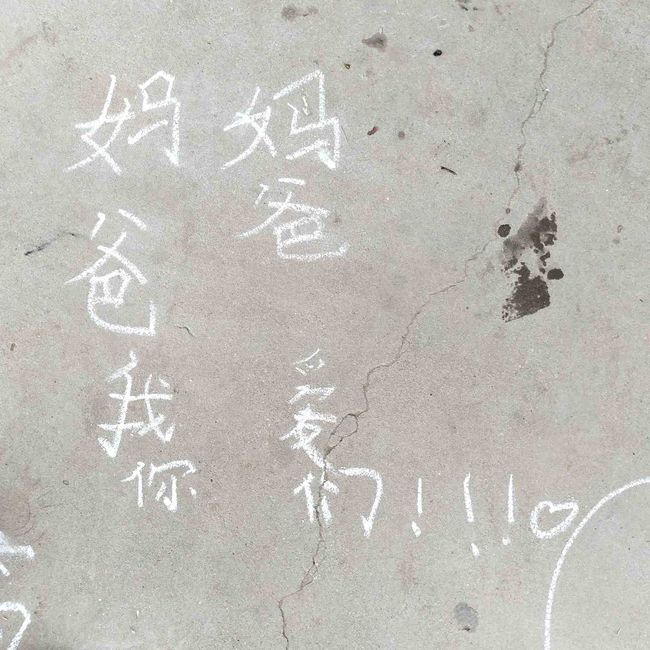 妈妈
爸爸
我爱
你们!!!